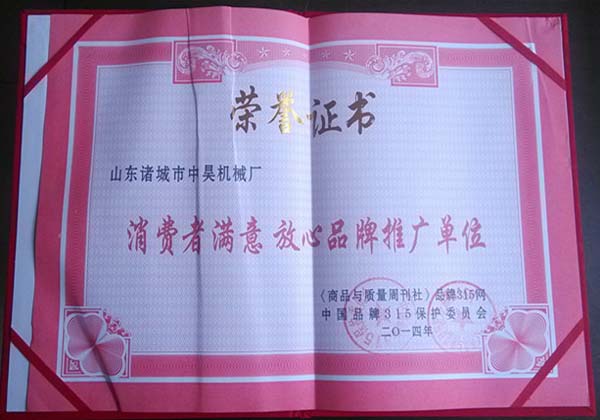 荣誉证书
山东诸城市中昊机械厂
消费者满意 放心品牌推广单位
《商品与质量周刊社》品牌315网
中国品牌315保护委员会
二〇一四年